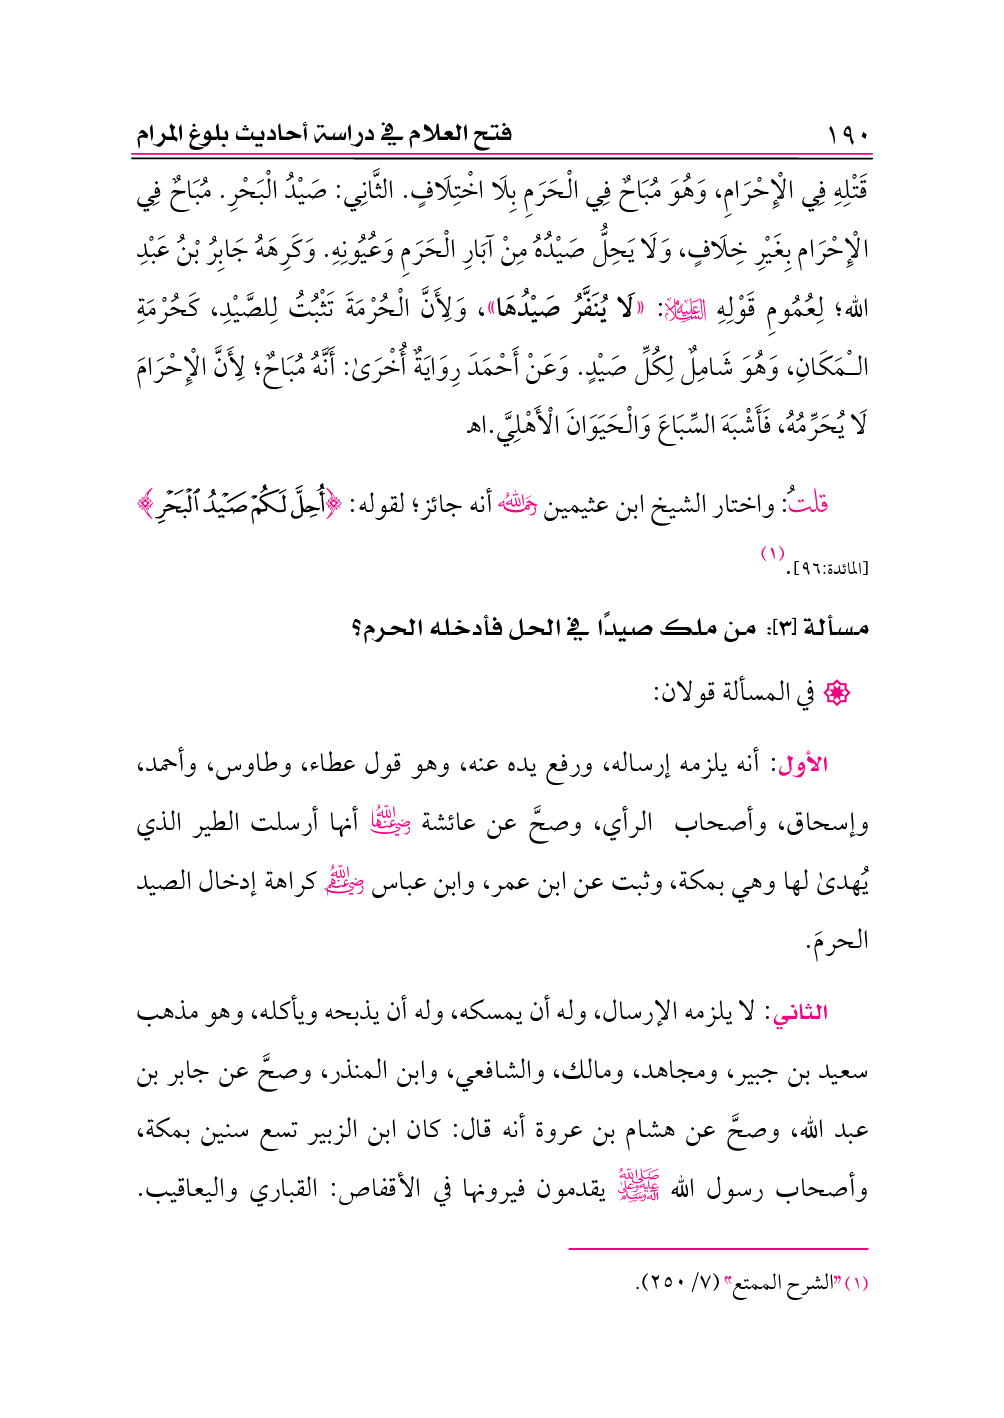 ١٩٠ فتح العلام في دراسة أحاديث بلوغ المرام
قَتْلِهِ فِي الْإِحْرَامِ، وَهُوَ مُبَاحٌ فِي الْحَرَمِ بِلَا اخْتِلَافٍ. الثَّانِي: صَيْدُ الْبَحْرِ. مُبَاحٌ فِي
الْإِحْرَامِ بِغَيْرِ خِلَافٍ، وَلَا يَحِلُّ صَيْدُهُ مِنْ آبَارِ الْحَرَمِ وَعُيُونِهِ. وَكَرِهَهُ جَابِرُ بْنُ عَبْدِ
الله؛ لِعُمُومِ قَوْلِهِ عليه السلام: «لَا يُنَفَّرُ صَيْدُهَا»، وَلِأَنَّ الْحُرْمَةَ تَثْبُتُ لِلصَّيْدِ، كَحُرْمَةِ
الْـمَكَانِ، وَهُوَ شَامِلٌ لِكُلِّ صَيْدٍ. وَعَنْ أَحْمَدَ رِوَايَةٌ أُخْرَىٰ: أَنَّهُ مُبَاحٌ؛ لِأَنَّ الْإِحْرَامَ
لَا يُحَرِّمُهُ، فَأَشْبَهَ السِّبَاعَ وَالْحَيَوَانَ الْأَهْلِيَّ.اهـ
قلتُ: واختار الشيخ ابن عثيمين رحمه الله أنه جائز؛ لقوله: ﴿أُحِلَّ لَكُمْ صَيْدُ ٱلْبَحْرِ﴾
[المائدة:٩٦]. (١)
مسألة [٣]: من ملك صيدًا في الحل فأدخله الحرم؟
۞ في المسألة قولان:
الأول: أنه يلزمه إرساله، ورفع يده عنه، وهو قول عطاء، وطاوس، وأحمد،
وإسحاق، وأصحاب الرأي، وصحَّ عن عائشة رضي الله عنها أنها أرسلت الطير الذي
يُهدىٰ لها وهي بمكة، وثبت عن ابن عمر، وابن عباس رضي الله عنهم كراهة إدخال الصيد
الحرمَ.
الثاني: لا يلزمه الإرسال، وله أن يمسكه، وله أن يذبحه ويأكله، وهو مذهب
سعيد بن جبير، ومجاهد، ومالك، والشافعي، وابن المنذر، وصحَّ عن جابر بن
عبد الله، وصحَّ عن هشام بن عروة أنه قال: كان ابن الزبير تسع سنين بمكة،
وأصحاب رسول الله ﷺ يقدمون فيرونها في الأقفاص: القباري واليعاقيب.
(١) "الشرح الممتع" (٧/ ٢٥٠).